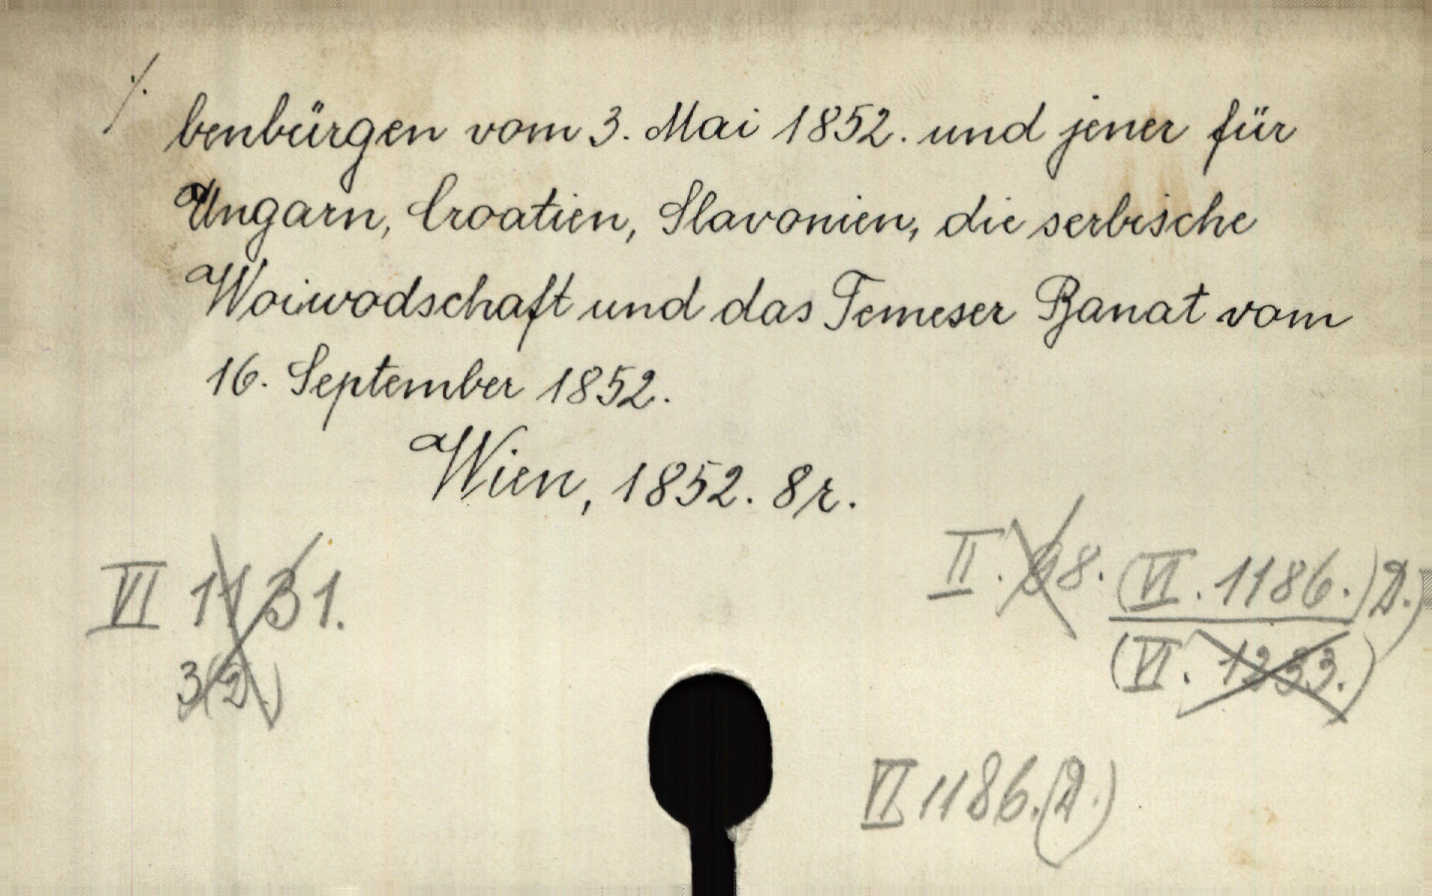 ./.
benbürgen vom 3. Mai 1852. und jener für
Ungarn, Croatien, Slavonien, die serbische
Woiwodschaft und das Temeser Banat vom
16. September 1852.
Wien, 1852. 8r.
VI 1131.
3(2.)
II. 98. (VI. 1186.) D.)
(VI. 1233.)
VI 1186.(D.)